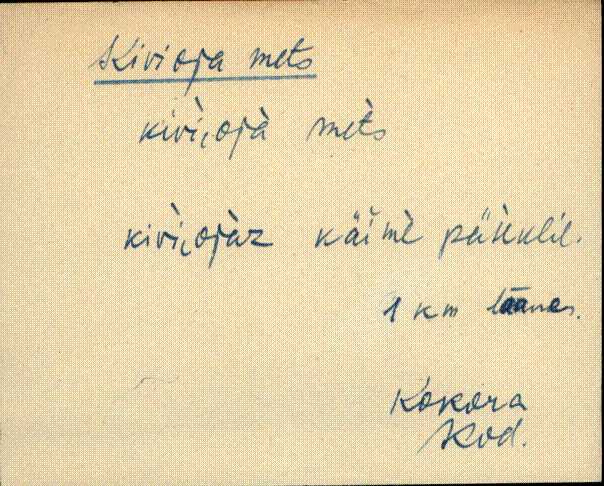 Kivioja mets
kivì,ojà mèts
kivì,ojàz käimè pähklil.
1 km läänes.
Kokora
Kod.